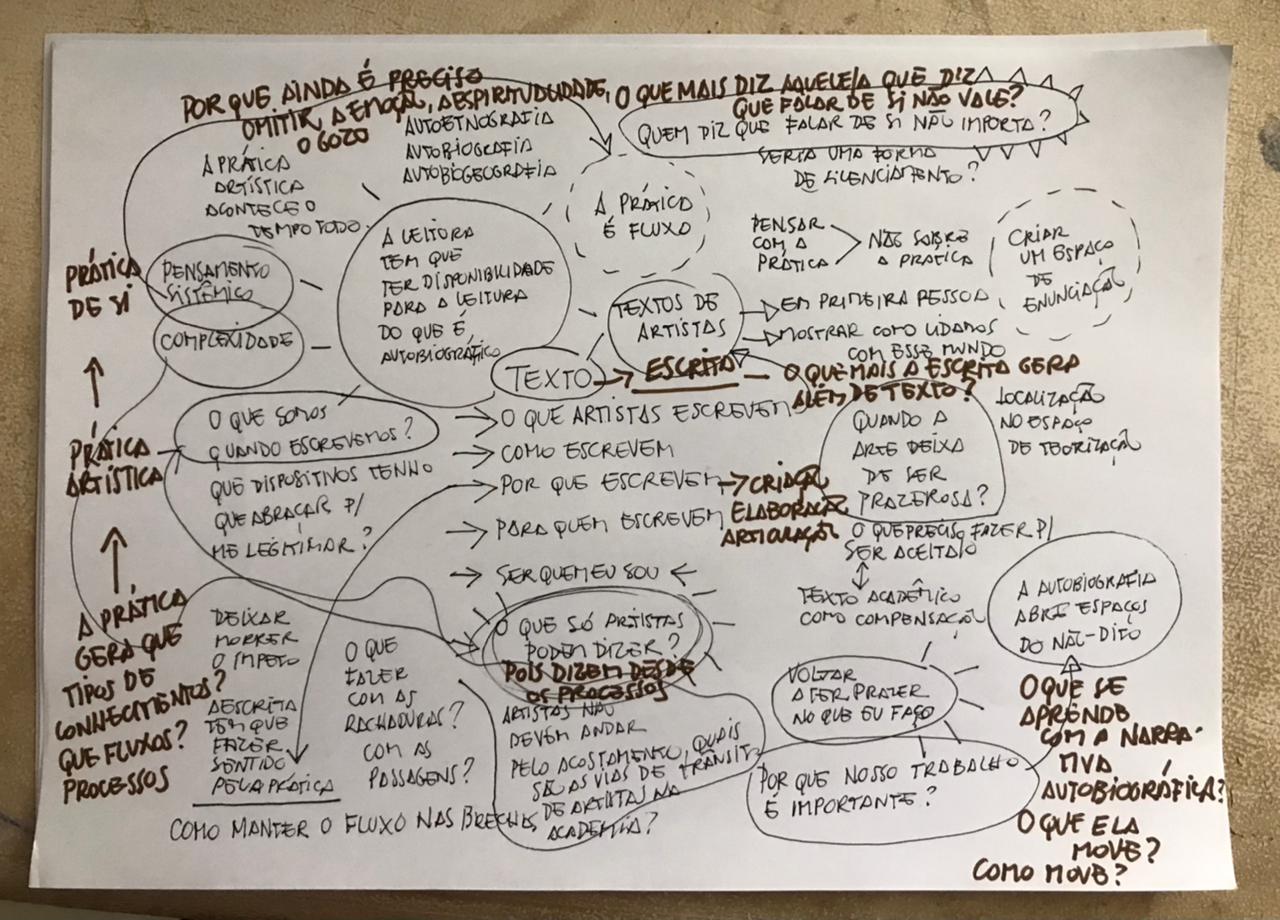 POR QUE AINDA É PRECISO
OMITIR A EMOÇÃO, A ESPIRITUALIDADE,
O GOZO
O QUE MAIS DIZ AQUELE/A QUE DIZ
QUE FALAR DE SI NÃO VALE?
QUEM DIZ QUE FALAR DE SI NÃO IMPORTA?
SERIA UMA FORMA
DE SILENCIAMENTO?
AUTOETNOGRAFIA
AUTOBIOGRAFIA
AUTOBIOGEOGRAFIA
A PRÁTICA
ARTÍSTICA
ACONTECE O
TEMPO TODO.
A PRÁTICA
É FLUXO
PENSAR
COM A
PRÁTICA
NÃO SOBRE
A PRÁTICA
CRIAR
UM ESPAÇO
DE
ENUNCIAÇÃO
PRÁTICA
DE SI
PENSAMENTO
SISTÊMICO
COMPLEXIDADE
A LEITURA
TEM QUE
TER DISPONIBILIDADE
PARA A LEITURA
DO QUE É
AUTOBIOGRÁFICO
TEXTOS DE
ARTISTAS
EM PRIMEIRA PESSOA
MOSTRAR COMO LIDAMOS
COM ESSE MUNDO
TEXTO
ESCRITA
O QUE MAIS A ESCRITA GERA
ALÉM DE TEXTO?
LOCALIZAÇÃO
NO ESPAÇO
DE TEORIZAÇÃO
PRÁTICA
ARTÍSTICA
O QUE SOMOS
QUANDO ESCREVEMOS?
QUE DISPOSITIVOS TENHO
QUE ABRAÇAR P/
ME LEGITIMAR?
O QUE ARTISTAS ESCREVEM
COMO ESCREVEM
POR QUE ESCREVEM
PARA QUEM ESCREVEM
SER QUEM EU SOU
CRIAÇÃO
ELABORAÇÃO
ARTICULAÇÃO
QUANDO A
ARTE DEIXA
DE SER
PRAZEROSA?
O QUE PRECISO FAZER P/
SER ACEITA/O
TEXTO ACADÊMICO
COMO COMPENSAÇÃO
A AUTOBIOGRAFIA
ABRE ESPAÇOS
DO NÃO-DITO
A PRÁTICA
GERA QUE
TIPOS DE
CONHECIMENTOS?
QUE FLUXOS?
PROCESSOS
DEIXAR
MORRER
O ÍMPETO
A ESCRITA
TEM QUE
FAZER
SENTIDO
PELA PRÁTICA
O QUE
FAZER
COM AS
RACHADURAS?
COM AS
PASSAGENS?
COMO MANTER O FLUXO NAS BRECHAS
O QUE SÓ ARTISTAS
PODEM DIZER?
POIS DIZEM DESDE
OS PROCESSOS
ARTISTAS NÃO
DEVEM ANDAR
PELO ACOSTAMENTO, QUAIS
SÃO AS VIAS DE TRÂNSITO
DE ARTISTAS NA
ACADEMIA?
VOLTAR
A TER PRAZER
NO QUE EU FAÇO
POR QUE NOSSO TRABALHO
É IMPORTANTE?
O QUE SE
APRENDE
COM A NARRA-
TIVA
AUTOBIOGRÁFICA?
O QUE ELA
MOVE?
COMO MOVE?